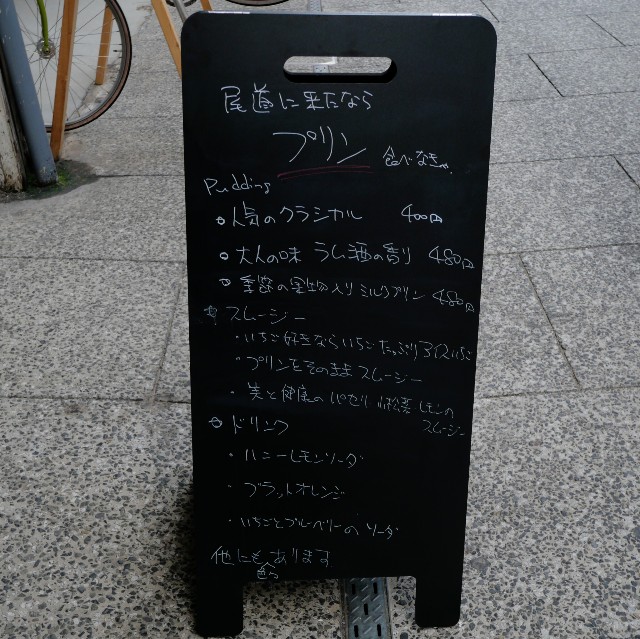 尾道に来たなら
プリン 食べなきゃ.
Pudding
人気のクラシカル 400円
大人の味 ラム酒の香り 480円
季節の果物入りミルクプリン 480円
スムージー
・いちご好きなら いちごたっぷり
プリンをそのままスムージー
・美と健康の パセリ レモンの
スムージー
ドリンク
・ハニーレモンソーダ
・ブラットオレンジ
・いちごとブルーベリーのソーダ
他にも 色々 あります